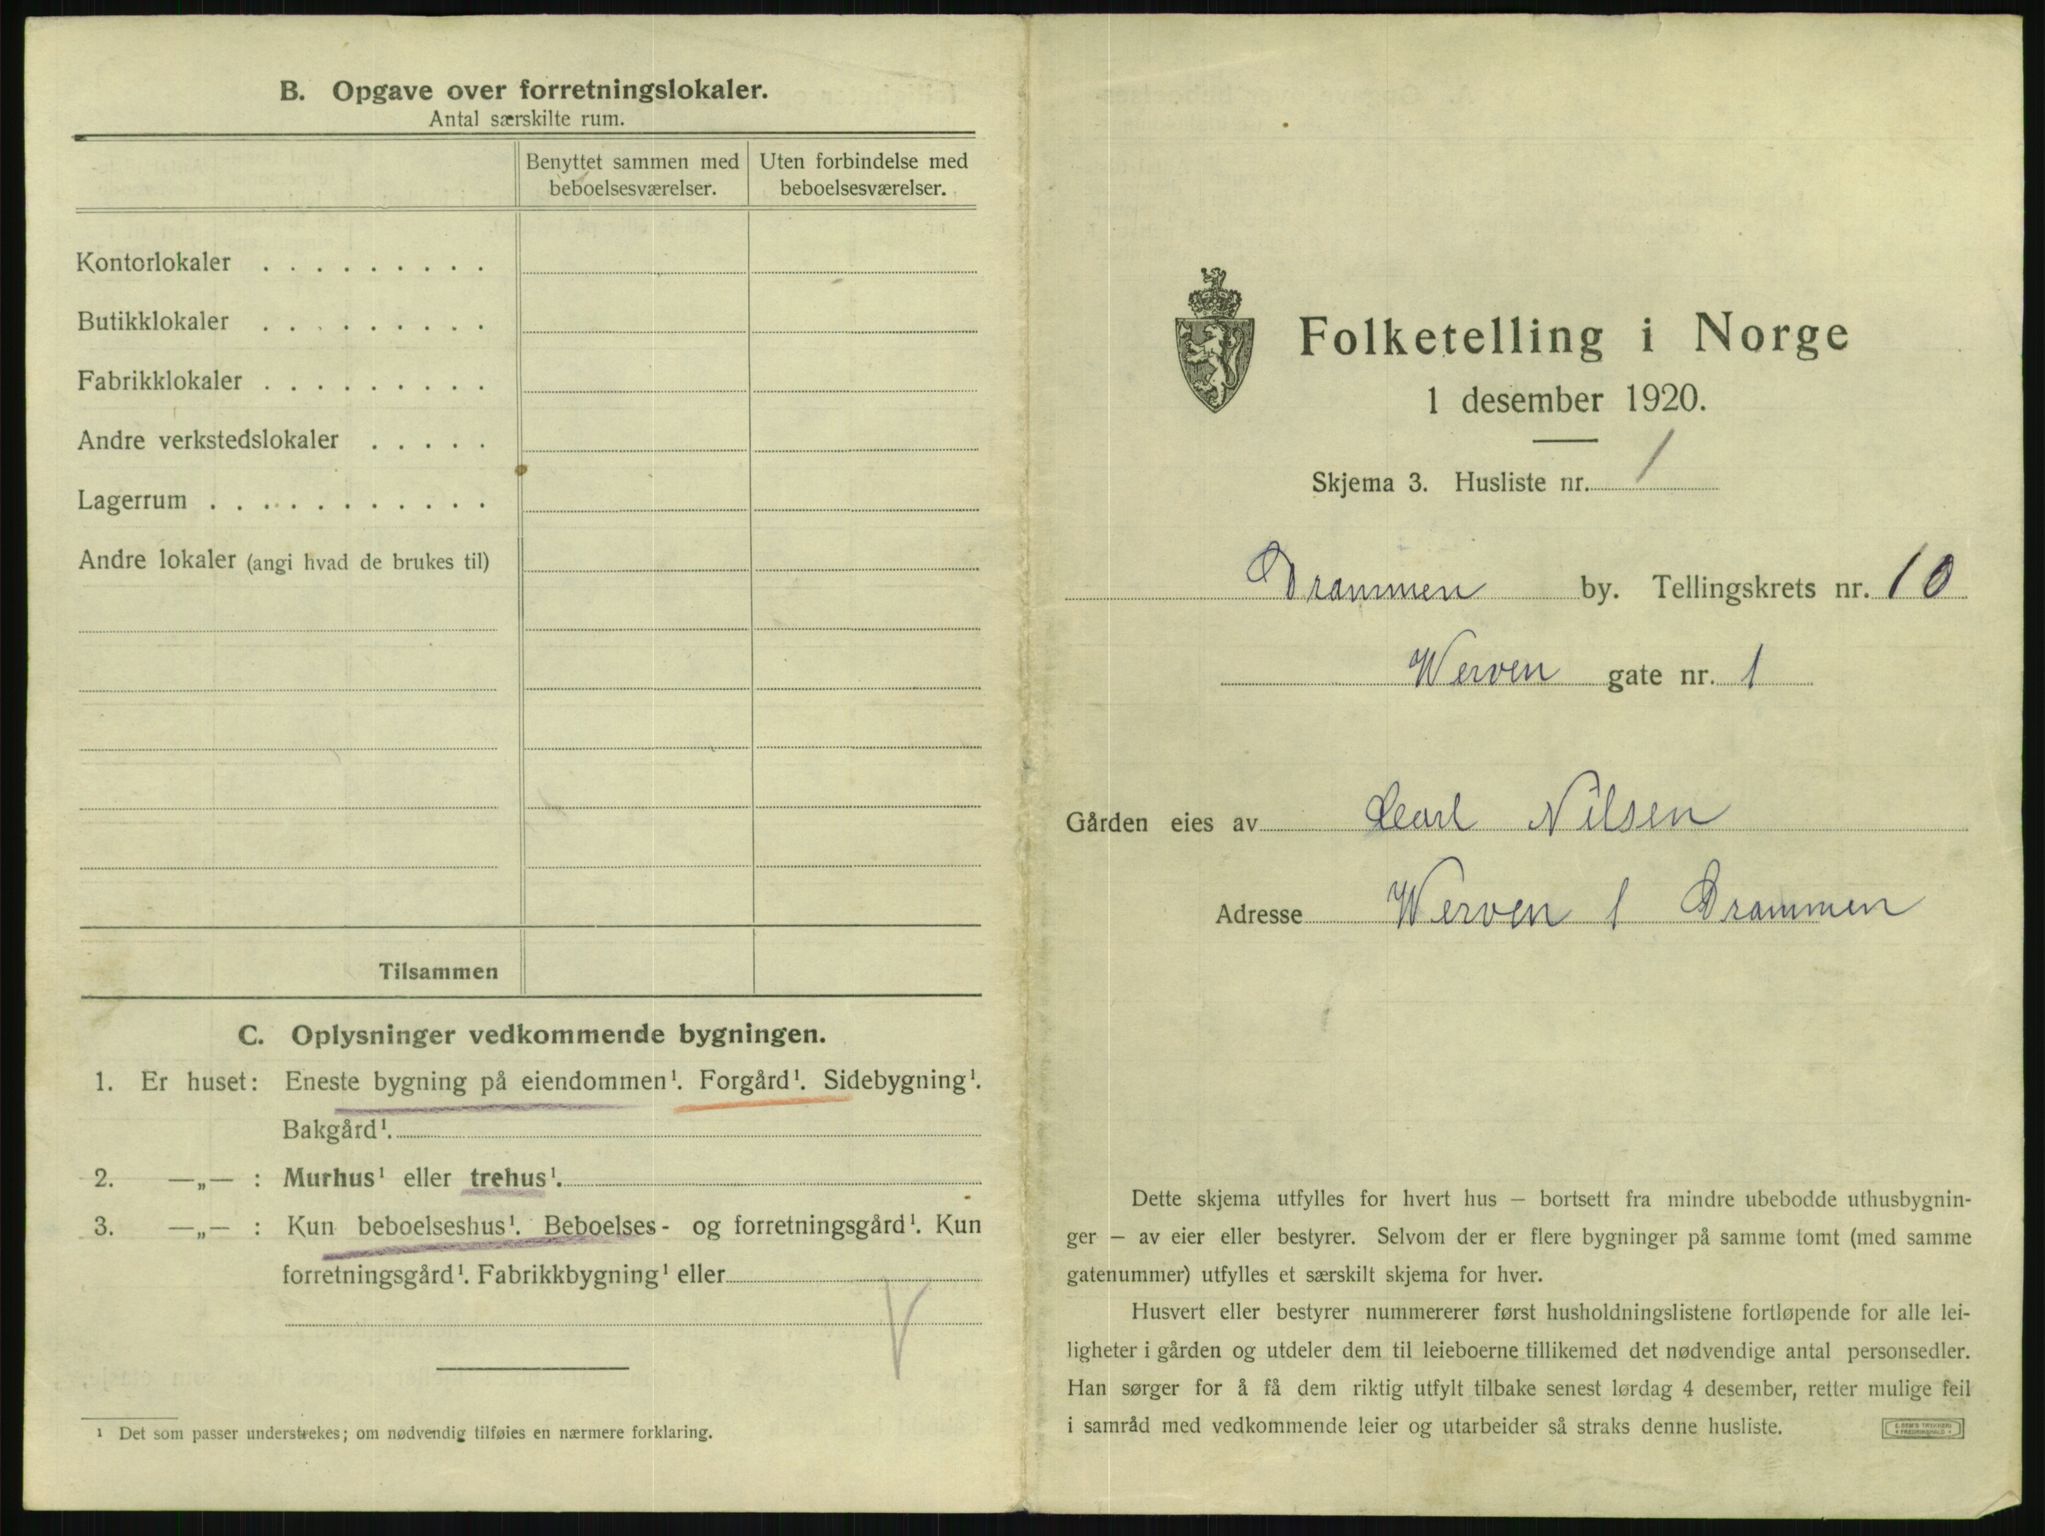 B. Opgave over forretningslokaler.
Antal særskilte rum.
Benyttet sammen med beboelsesværelser.
Uten forbindelse med beboelsesværelser.
Kontorlokaler . . . . . . . . .
Butikklokaler . . . . . . . . .
Fabrikklokaler . . . . . . . . .
Andre verkstedslokaler . . . . .
Lagerrum . . . . . . . . . . .
Andre lokaler (angi hvad de brukes til)
Tilsammen
C. Oplysninger vedkommende bygningen.
1. Er huset: Eneste bygning på eiendommen¹. Forgård¹. Sidebygning¹.
Bakgård¹.
2. —„— : Murhus¹ eller trehus¹.
3. —„— : Kun beboelseshus¹. Beboelses- og forretningsgård¹. Kun
forretningsgård¹. Fabrikkbygning¹ eller
¹ Det som passer understrekes; om nødvendig tilføies en nærmere forklaring.
Folketelling i Norge
1 desember 1920.
Skjema 3. Husliste nr. 1
Drammen by. Tellingskrets nr. 10
Werven gate nr. 1
Gården eies av Carl Nilsen
Adresse Werven 1 Drammen
Dette skjema utfylles for hvert hus – bortsett fra mindre ubebodde uthusbygnin-
ger – av eier eller bestyrer. Selvom der er flere bygninger på samme tomt (med samme
gatenummer) utfylles et særskilt skjema for hver.
Husvert eller bestyrer nummererer først husholdningslistene fortløpende for alle lei-
ligheter i gården og utdeler dem til leieboerne tillikemed det nødvendige antal personsedler.
Han sørger for å få dem riktig utfylt tilbake senest lørdag 4 desember, retter mulige feil
i samråd med vedkommende leier og utarbeider så straks denne husliste.